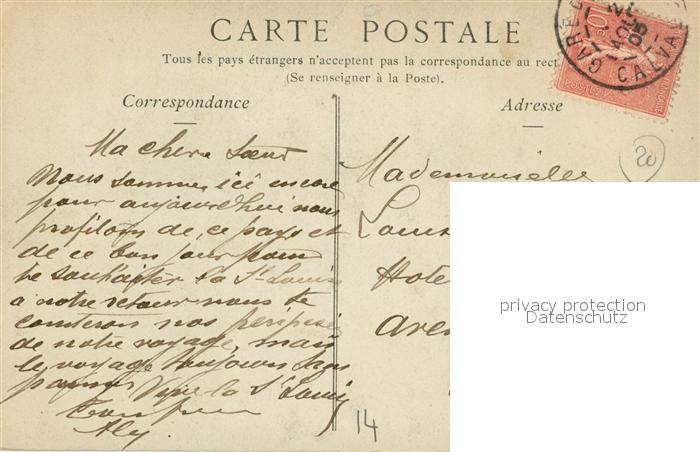 CARTE POSTALE
Tous les pays étrangers n'acceptent pas la correspondance au rect
(Se renseigner à la Poste).
Correspondance
Adresse
GARE
CALVA
AOU
05
10
POSTES
20
Ma chere Sœur
Nous sommes ici encore
pour aujourd'hui nous
profitons de ce pays et
de ce bon jour pour
te souhaiter la St Louis
a notre retour nous te
conteron nos
de notre voyage, mais
le voyage toujours sans
Vive la St Louis
Ton
Aly
14
Mademoiselle
Louis
Hote
aven
privacy protection
Datenschutz